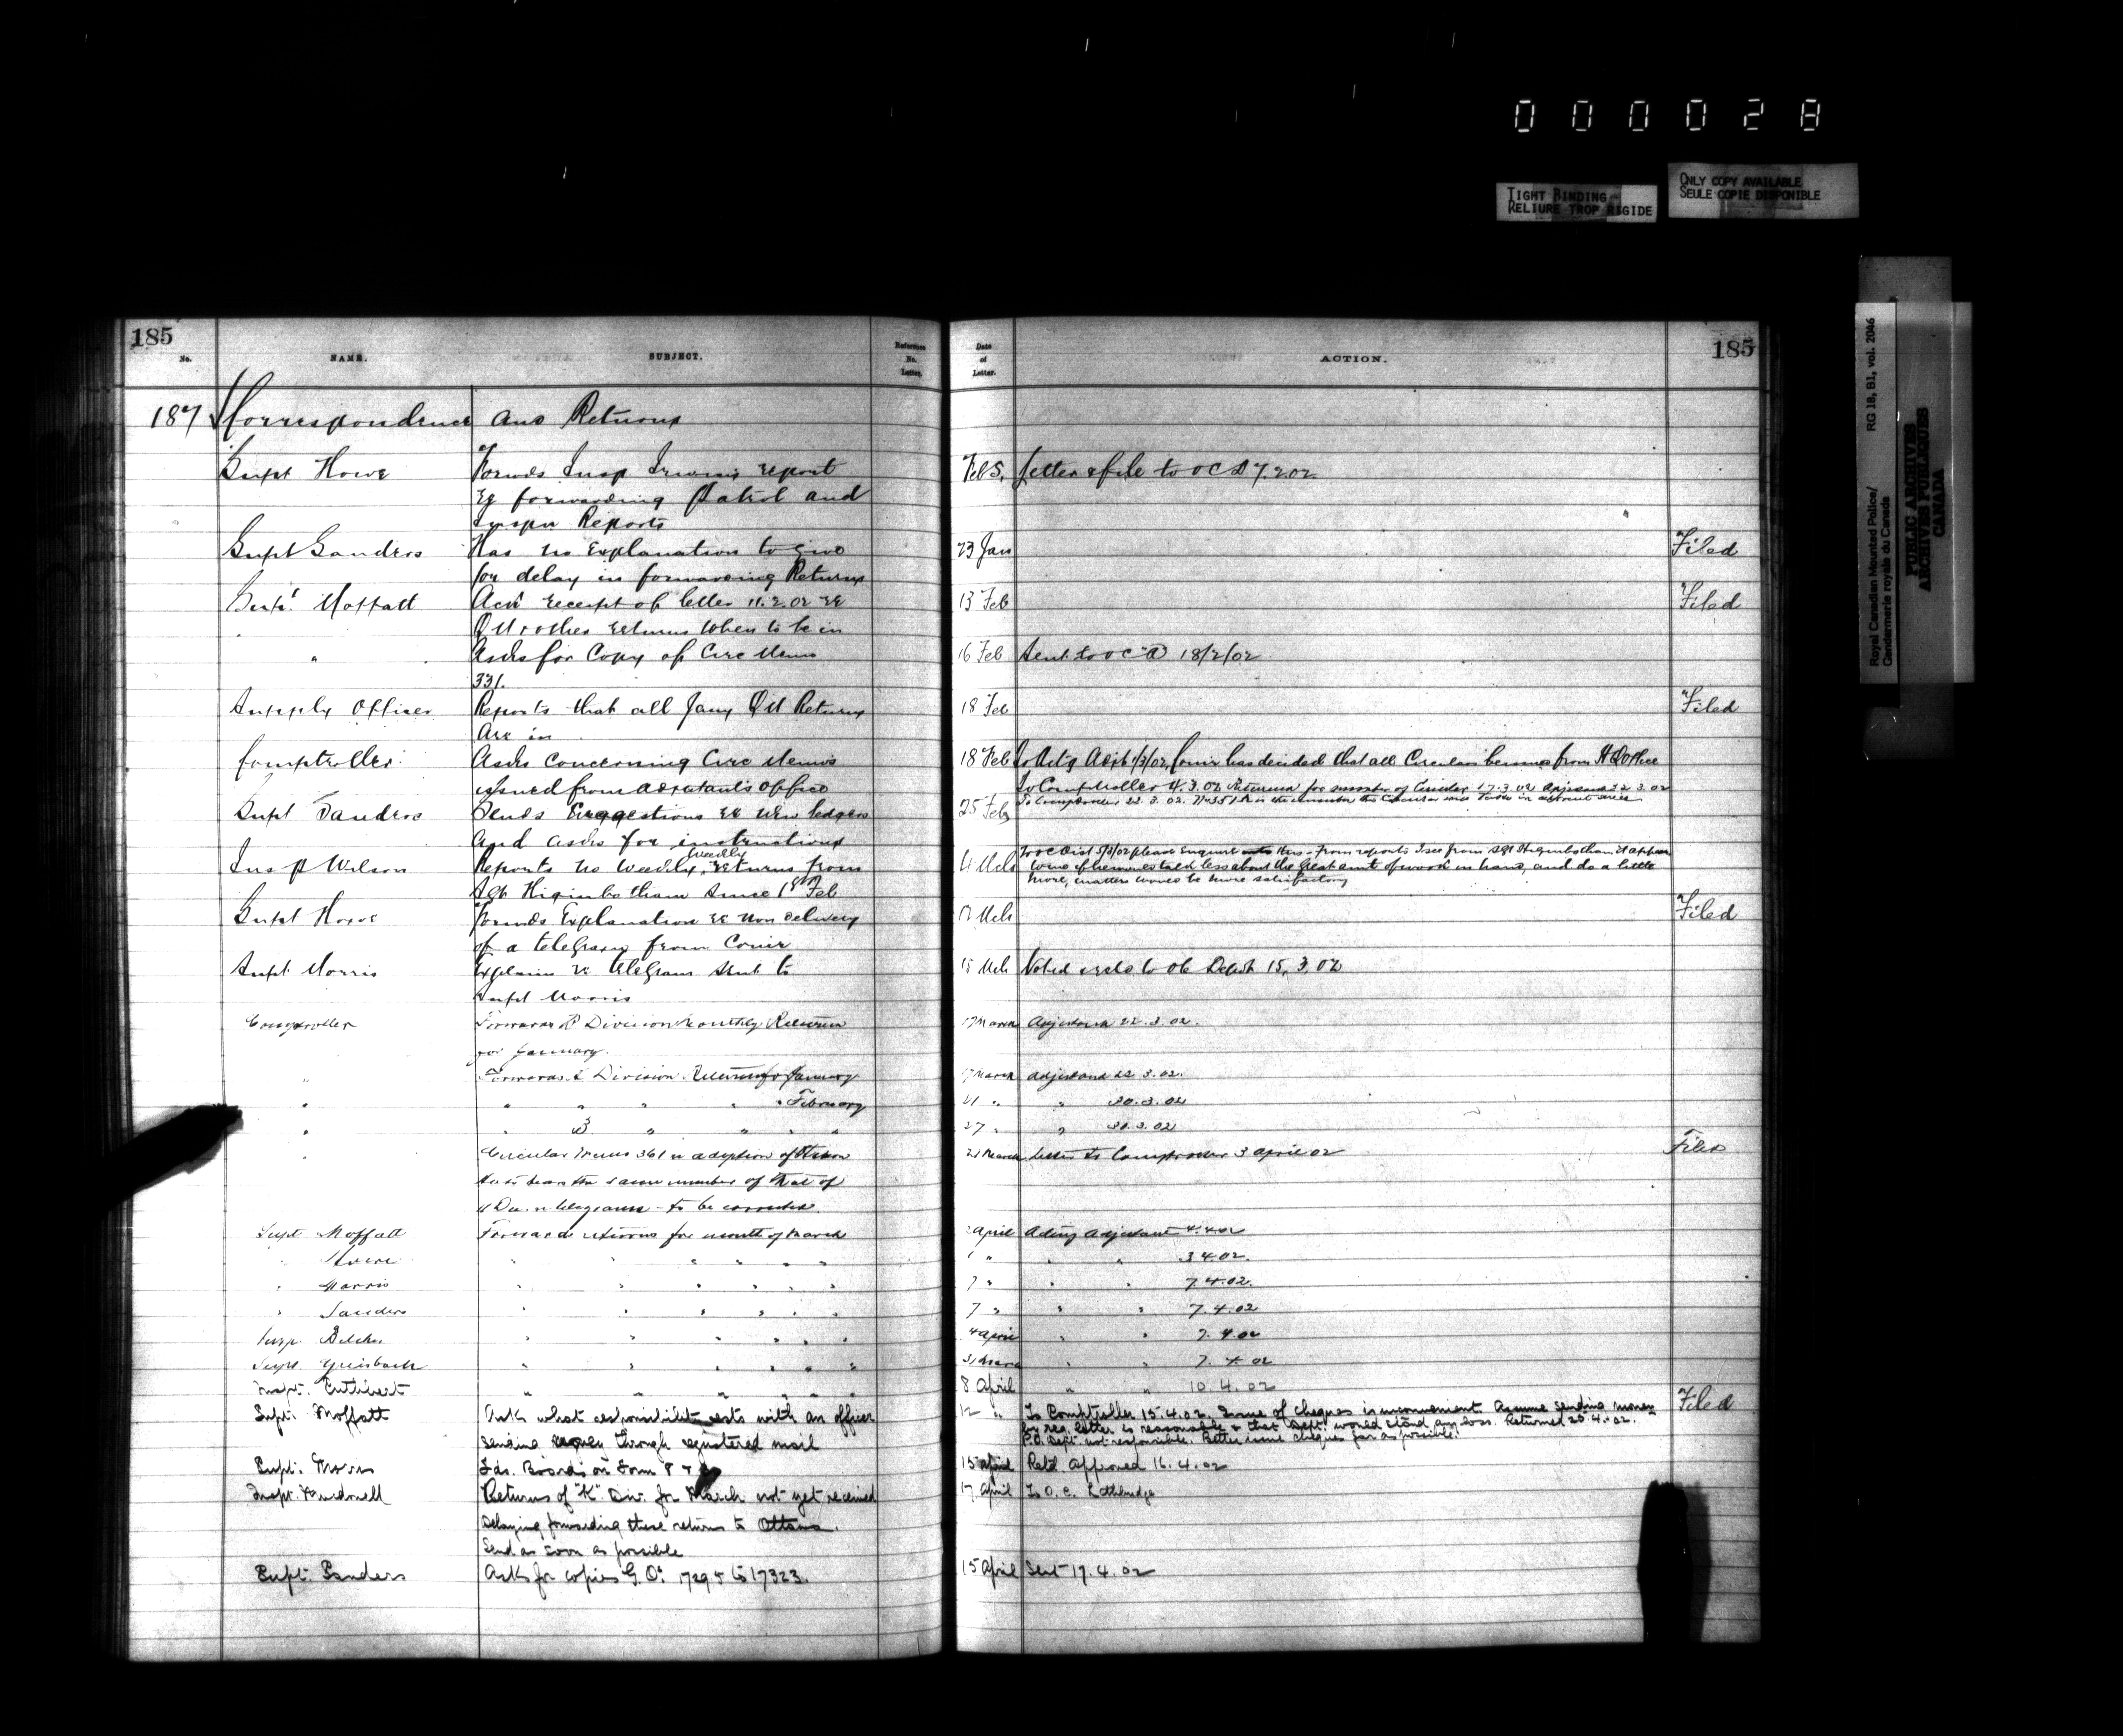 000028
TIGHT BINDING
RELIURE TROP RIGIDE
ONLY COPY AVAILABLE
SEULE COPIE DISPONIBLE
Royal Canadian Mounted Police/
Gendarmerie royale du Canada
RG 18, B1, vol. 2046
PUBLIC ARCHIVES
ARCHIVES PUBLIQUES
CANADA
185
No.
NAME.
SUBJECT.
Reference
No.
Letter.
Date
of
Letter.
ACTION.
185
187 Correspondence and Returns
Supt Howe Forwds Insp Irwin's report Feb 5. Letter & file to OC D 7.2.02
re forwarding Patrol and
Reports
Supt Sanders Has no Explanation to give 23 Jan Filed
for delay in forwarding Returns
Supt. Moffatt Ack receipt of letter 11.2.02 re 13 Feb Filed
QM & other returns when to be in
" Asks for Copy of Circ Memo 16 Feb Sent to OC "D" 18/2/02
331.
Supply Officer Reports that all Jany QM Returns 18 Feb Filed
Are in
Comptroller Asks concerning Circ Memos 18 Feb To Act'g Adjt 1/3/02, Comr has decided that all Circulars be issued from HQ Office
issued from Adjutant's Office To Comptroller 4.3.02 Returned for number of Circular 17.3.02 Adjutant 22.3.02
To Comptroller 22.3.02.
Supt Sanders Sends Suggestions re new ledgers 25 Feb
and asks for instructions
Weekly
Insp Wilson Reports no Weekly returns from 4 Mch To OC Dist 5/3/02 please Enquire this. From reports I see from Sgt Higinbotham it appears
Sgt Higinbotham since 1st Feb talk less about the great amt of work in hand, and do a little
more, matters would be more satisfactory
Supt Howe Forwds Explanation re non delivery 12 Mch Filed
of a telegram from Comr
Supt Morris Explain re telegram sent to 15 Mch Noted 15.3.02
Supt Morris
Comptroller Forwards Division Monthly Returns 17 March Adjutant 22.3.02.
for January.
" Forwards Division Returns for January 17 March Adjutant 22.3.02.
" " " " " " February 21 " " 30.3.02
" " " " " " " 27 " " 30.3.02
" Circular Memo 361 re adoption of 27 March Letter to Comptroller 3 April 02 Filed
bears the same number of that of
telegrams - to be corrected
Supt Moffatt Forwards returns for month of March April Acting Adjutant 4.4.02
" " " " " " " " " 3.4.02.
" Morris " " " " " " 7 " " " 7.4.02.
" Sanders " " " " " " 7 " " " 7.4.02
Insp. Belcher " " " " " 4 April " " 7.4.02
Supt. Griesbach " " " " " 31 March " " 7.4.02
Inspt. Cuthbert " " " " " " 8 April " " 10.4.02
Supt. Moffatt Ask what responsibility rests with an officer 12 " To Comptroller 15.4.02 Issue of cheques is inconvenient. Assume sending money Filed
sending money through registered mail by reg. letter is reasonable & that Dept. would stand any loss. Returned 25.4.02.
P.O. Dept. not responsible. Better issue cheques far as possible.
Supt. Morris Fds. Boards on Form 15 April Retd. Approved 16.4.02
Inspt. Macdonell Returns of "K" Div. for March not yet received 17 April To O.C. Lethbridge
Delaying forwarding these returns to Ottawa.
Send as soon as possible
Supt. Sanders Asks for copies G.O.s 17295 to 17323. 15 April Sent 17.4.02